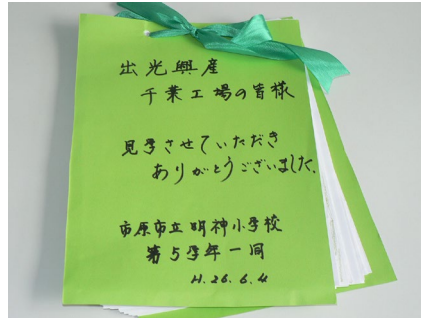 出光興産
千葉工場の皆様
見学させていただき
ありがとうございました。
市原市立明神小学校
第5学年一同
H.26.6.4